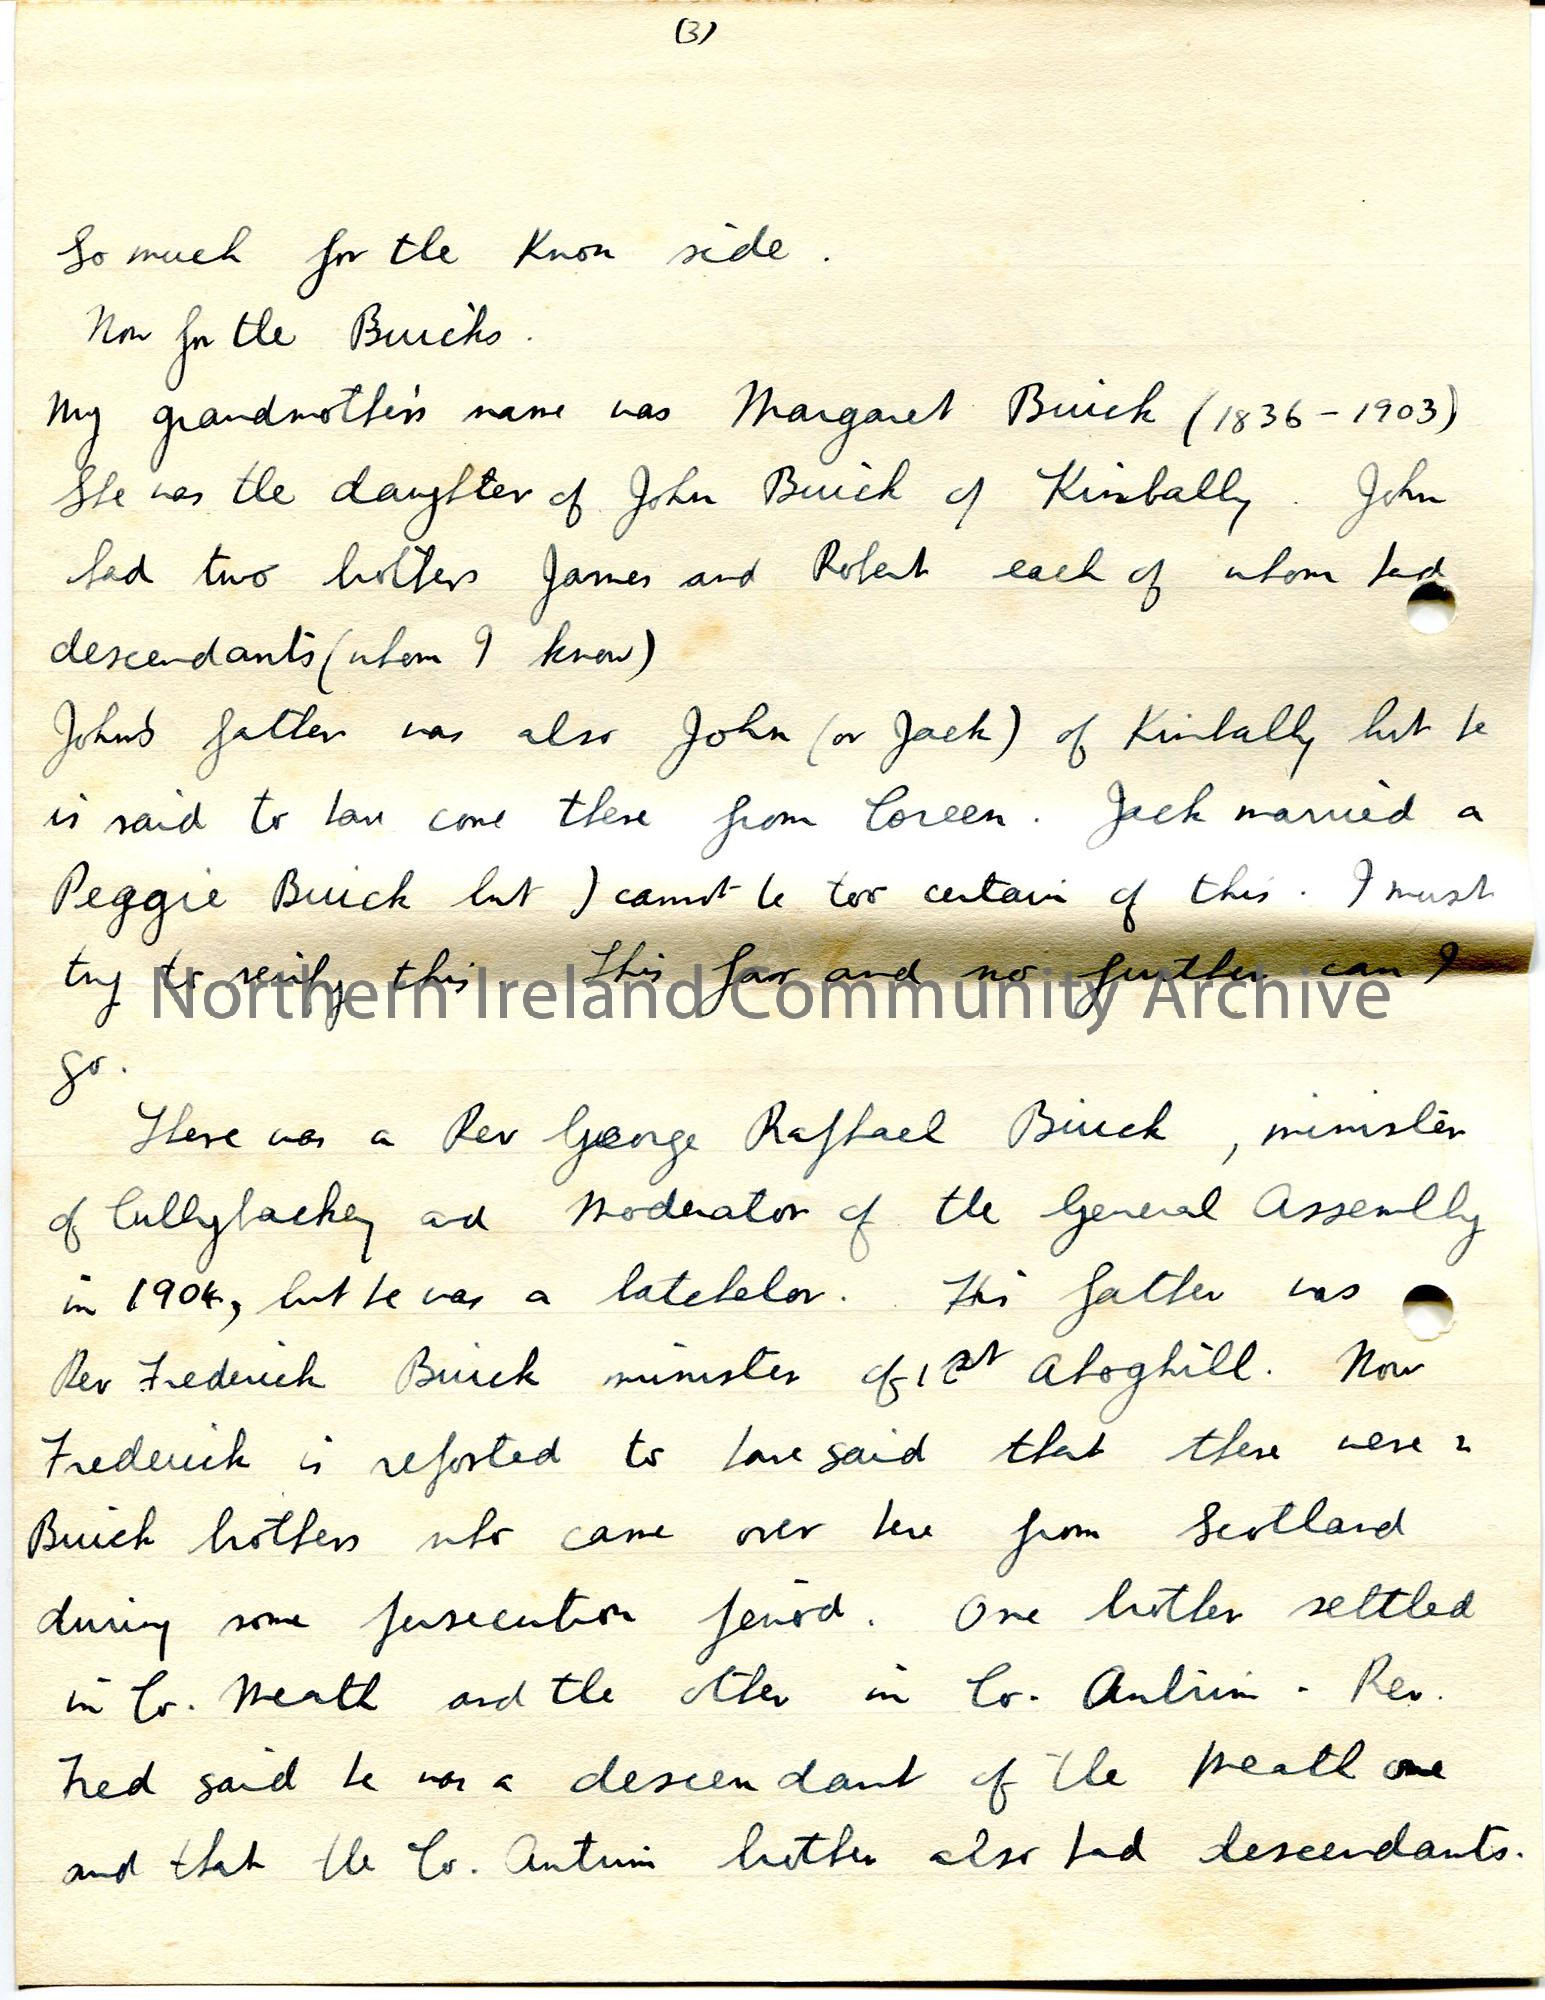 (3)
So much for the Knox side.
Now for the Buicks.
My grandmother's name was Margaret Buick (1836-1903)
She was the daughter of John Buick of Kinbally. John
had two brothers James and Robert each of whom had
descendants (whom I know)
John's father was also John (or Jack) of Kinbally but he
is said to have come there from Coreen. Jack married a
Peggie Buick but I cannot be too certain of this. I must
try to verify this. This far and no further can I
go.
Northern Ireland Community Archive
There was a Rev George Raphael Buick, minister
of Cullybackey and Moderator of the General Assembly
in 1904, but he was a batchelor. His father was
Rev Frederick Buick minister of 1st Ahoghill. Now
Frederick is reported to have said that there were 2
Buick brothers who came over here from Scotland
during some persecution period. One brother settled
in Co. Meath and the other in Co. Antrim - Rev.
Fred said he was a descendant of the Meath one
and that the Co. Antrim brother also had descendants.